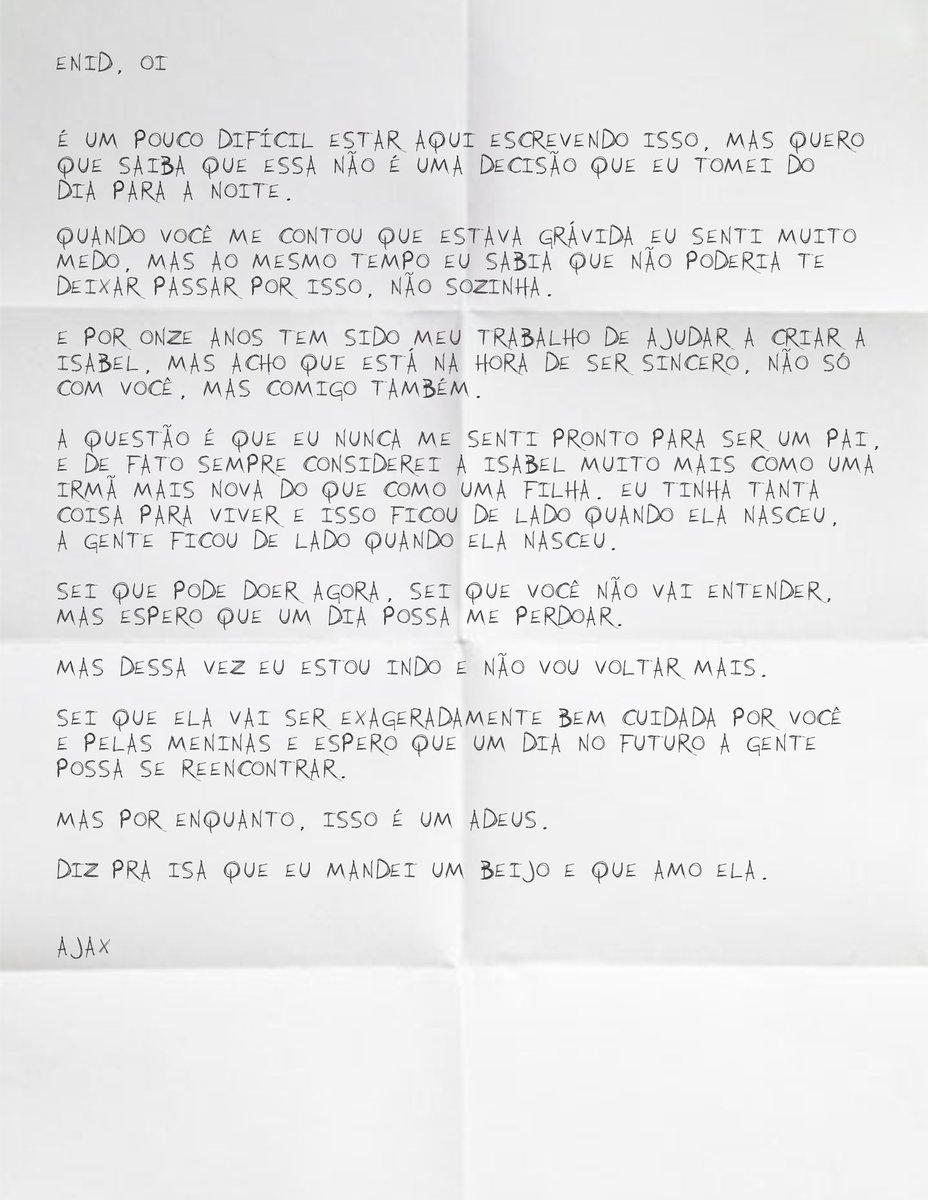 ENID, OI
É UM POUCO DIFÍCIL ESTAR AQUI ESCREVENDO ISSO, MAS QUERO
QUE SAIBA QUE ESSA NÃO É UMA DECISÃO QUE EU TOMEI DO
DIA PARA A NOITE.
QUANDO VOCÊ ME CONTOU QUE ESTAVA GRÁVIDA EU SENTI MUITO
MEDO, MAS AO MESMO TEMPO EU SABIA QUE NÃO PODERIA TE
DEIXAR PASSAR POR ISSO, NÃO SOZINHA.
E POR ONZE ANOS TEM SIDO MEU TRABALHO DE AJUDAR A CRIAR A
ISABEL, MAS ACHO QUE ESTÁ NA HORA DE SER SINCERO, NÃO SÓ
COM VOCÊ, MAS COMIGO TAMBÉM.
A QUESTÃO É QUE EU NUNCA ME SENTI PRONTO PARA SER UM PAI,
E DE FATO SEMPRE CONSIDEREI A ISABEL MUITO MAIS COMO UMA
IRMÃ MAIS NOVA DO QUE COMO UMA FILHA. EU TINHA TANTA
COISA PARA VIVER E ISSO FICOU DE LADO QUANDO ELA NASCEU,
A GENTE FICOU DE LADO QUANDO ELA NASCEU.
SEI QUE PODE DOER AGORA, SEI QUE VOCÊ NÃO VAI ENTENDER,
MAS ESPERO QUE UM DIA POSSA ME PERDOAR.
MAS DESSA VEZ EU ESTOU INDO E NÃO VOU VOLTAR MAIS.
SEI QUE ELA VAI SER EXAGERADAMENTE BEM CUIDADA POR VOCÊ
E PELAS MENINAS E ESPERO QUE UM DIA NO FUTURO A GENTE
POSSA SE REENCONTRAR.
MAS POR ENQUANTO, ISSO É UM ADEUS.
DIZ PRA ISA QUE EU MANDEI UM BEIJO E QUE AMO ELA.
AJAX